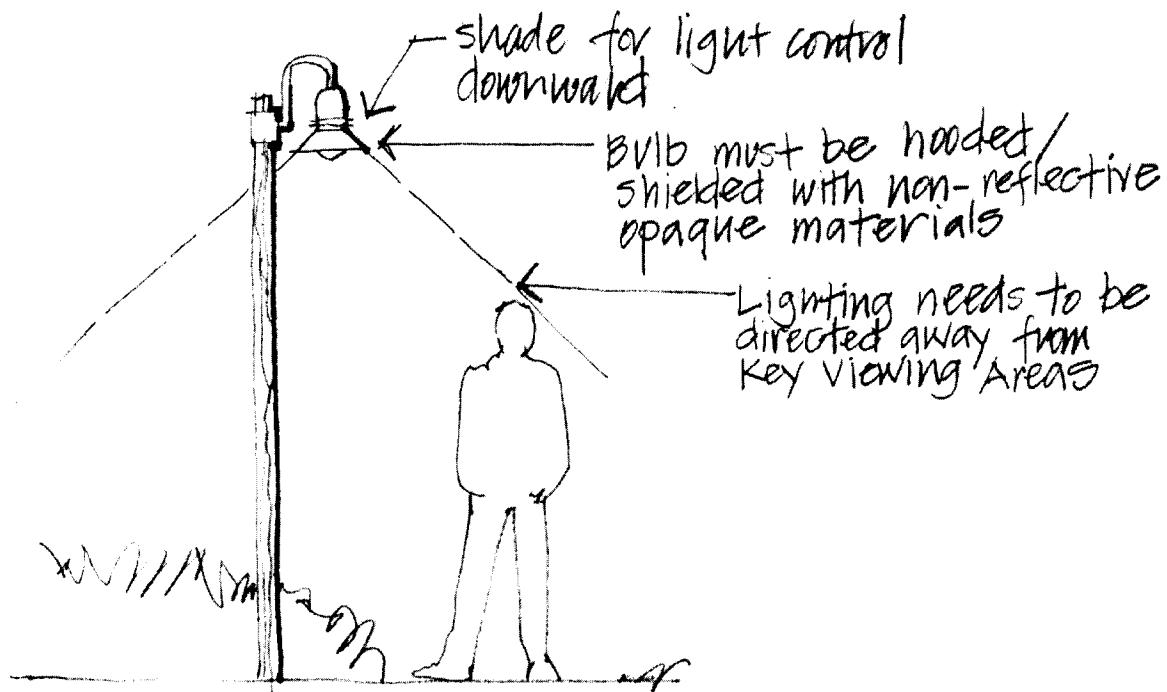 shade for light control
downward
Bulb must be hooded/
shielded with non-reflective
opaque materials
Lighting needs to be
directed away from
Key Viewing Areas